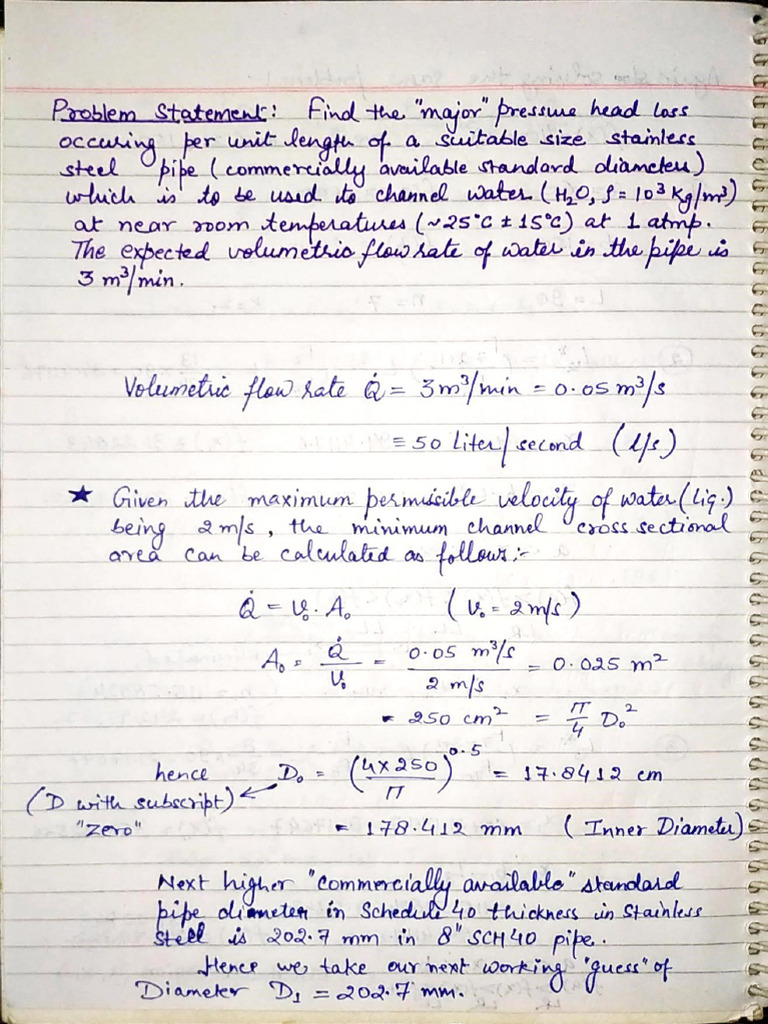 Problem Statement: Find the "major" pressure head loss
occuring per unit length of a suitable size stainless
steel pipe (commercially available standard diameters)
which is to be used to channel water (H₂O, ρ = 10³ Kg/m³)
at near room temperatures (~25°C ± 15°C) at 1 atmp.
The expected volumetric flow rate of water in the pipe is
3 m³/min.
Volumetric flow rate Q̇ = 3m³/min = 0.05 m³/s
= 50 liter/second (l/s)
★ Given the maximum permissible velocity of water (Liq.)
being 2 m/s, the minimum channel cross sectional
area can be calculated as follows:-
Q̇ = V₀. A₀ (V₀ = 2m/s)
A₀ = Q̇/V₀ = 0.05 m³/s / 2 m/s = 0.025 m²
= 250 cm² = π/4 D₀²
hence D₀ = (4×250/π)^0.5 = 17.8412 cm
(D with subscript) ←
"zero" = 178.412 mm (Inner Diameter)
Next higher "commercially available" standard
pipe diameter in Schedule 40 thickness in Stainless
Steel is 202.7 mm in 8" SCH 40 pipe.
Hence we take our next working "guess" of
Diameter D₁ = 202.7 mm.